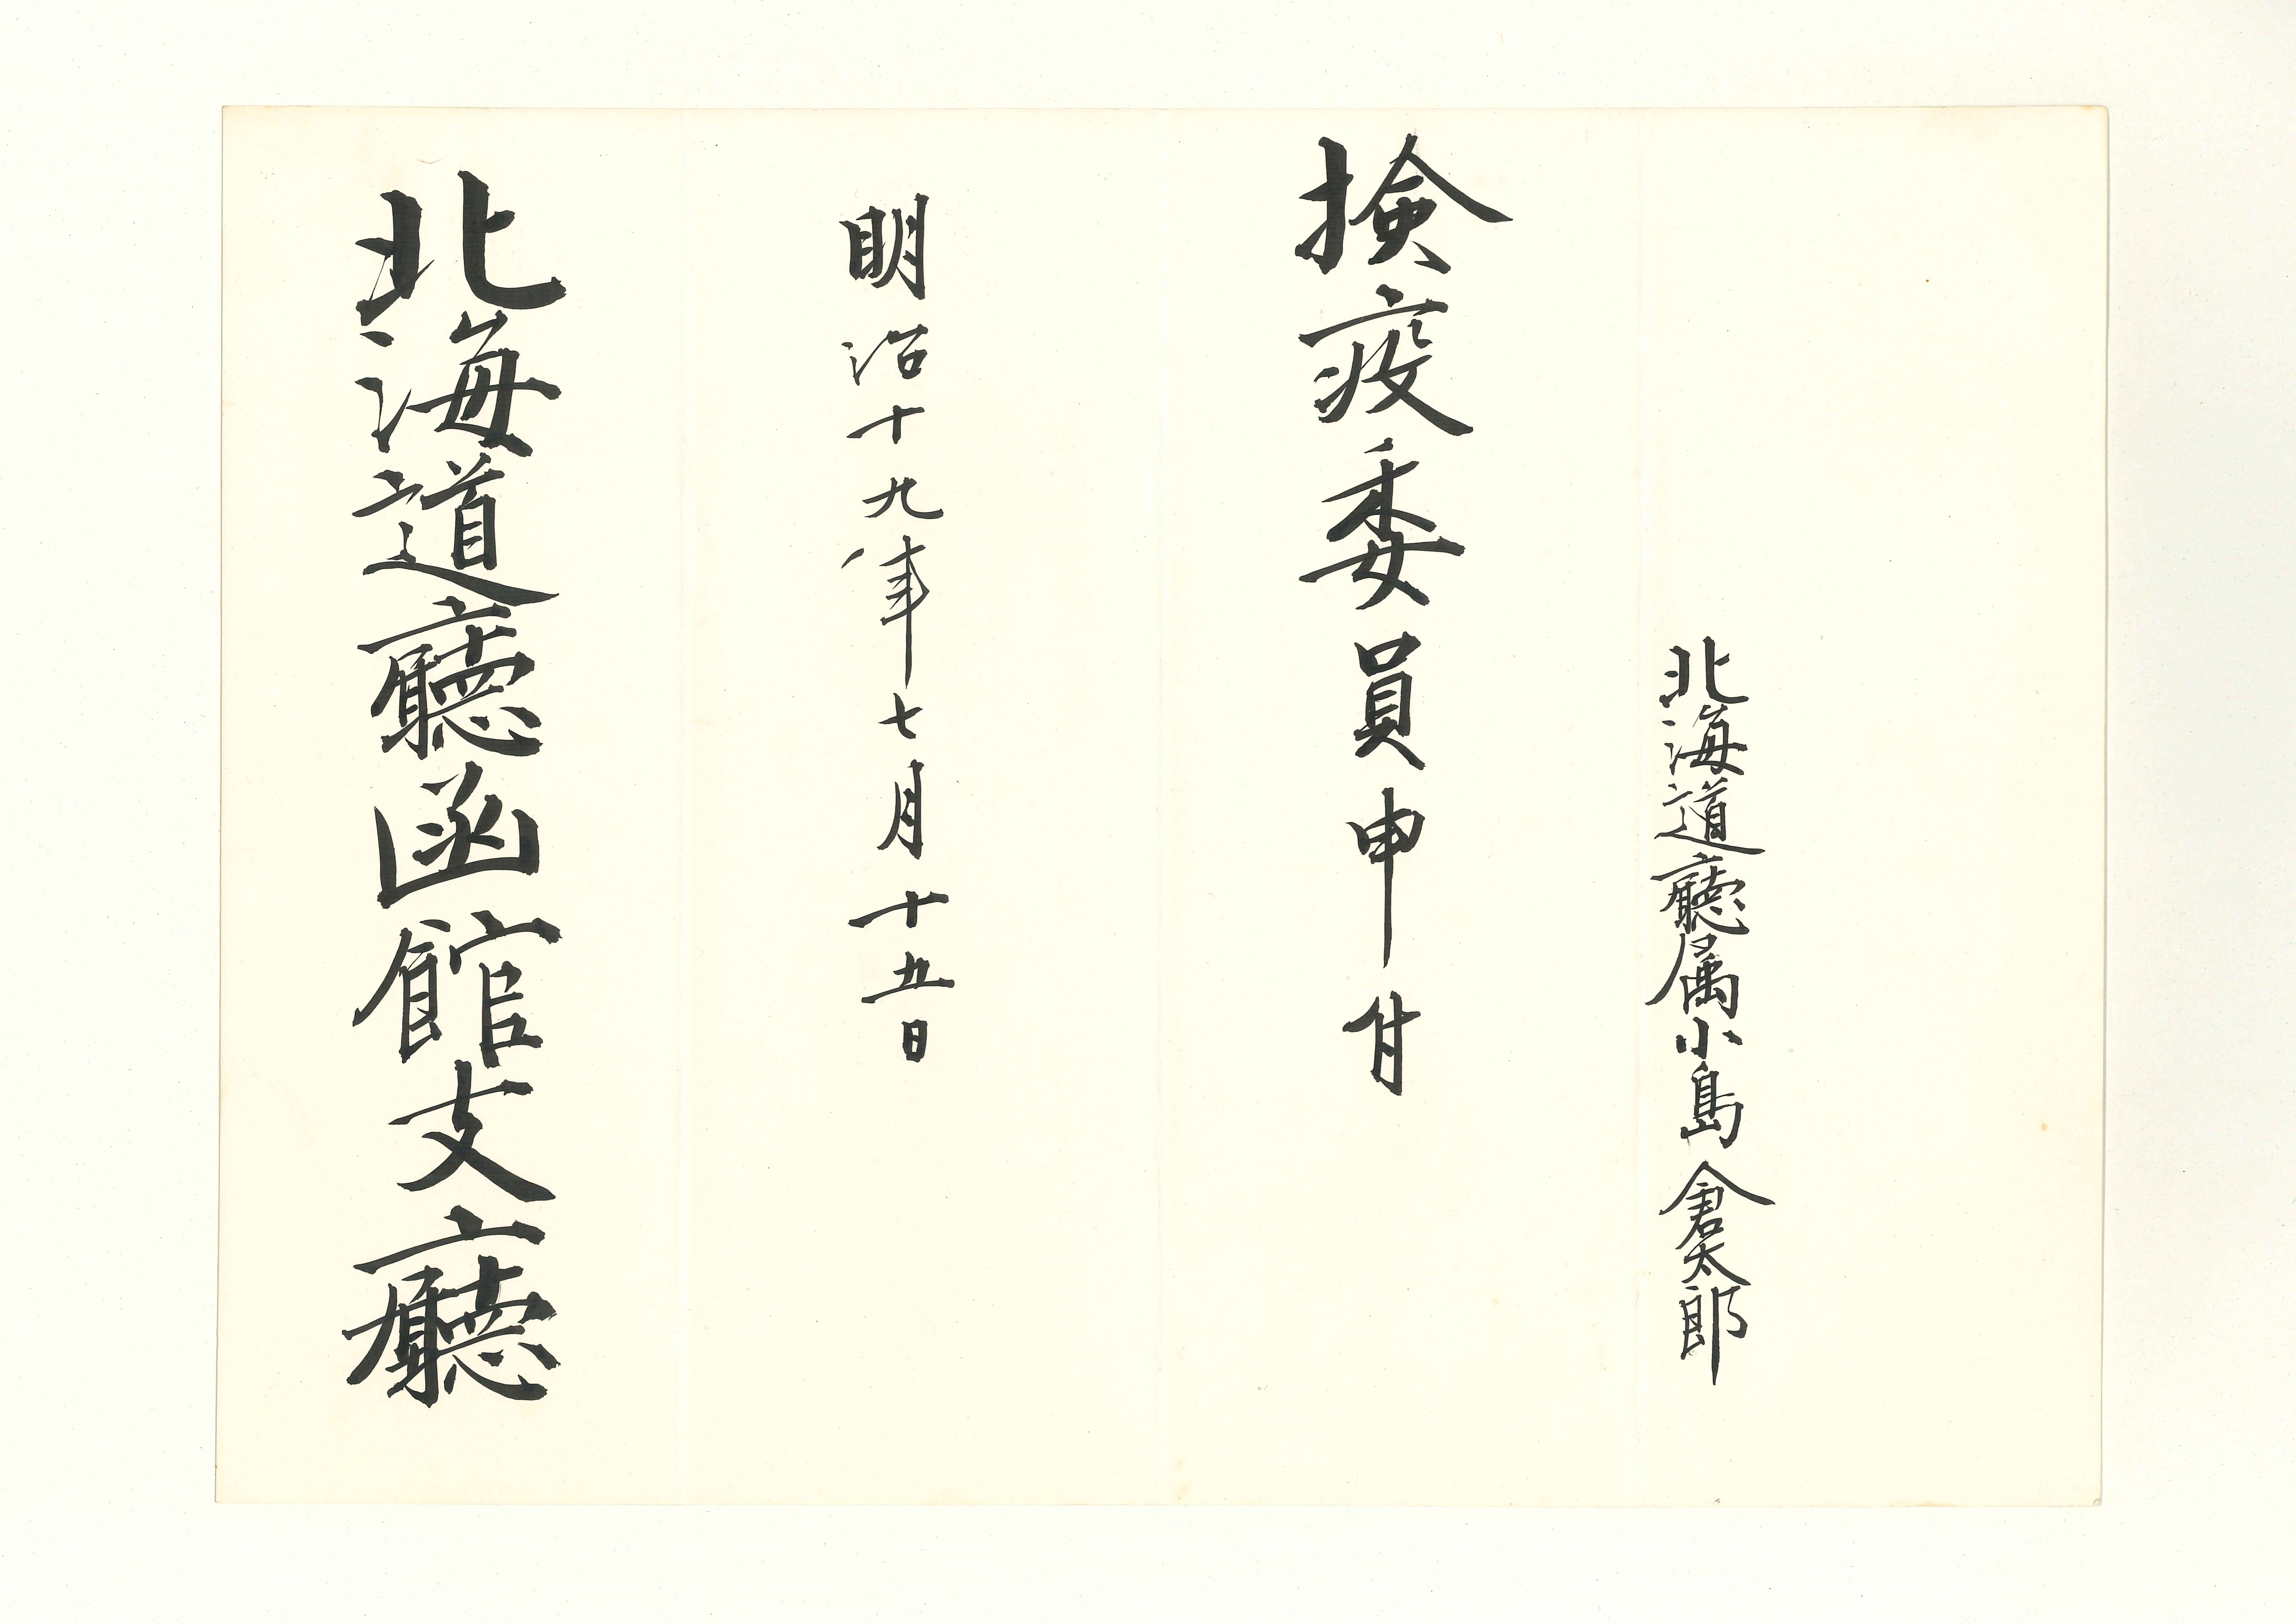 北海道廳属小島倉太郎
撿疫委員申付
明治十九年七月十五日
北海道廳函館支廳